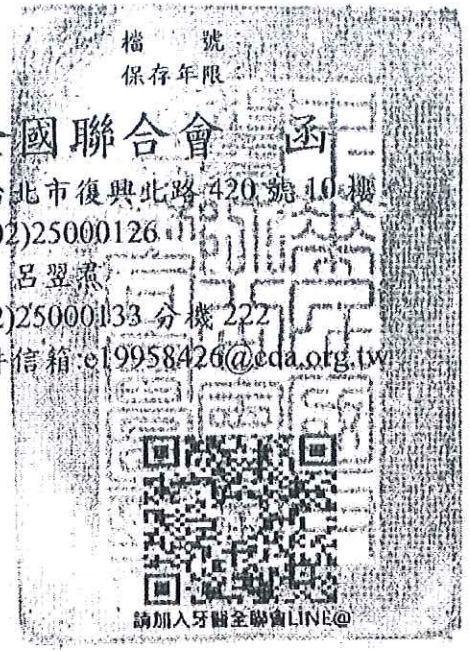 檔 號
保存年限
全國聯合會 函
台北市復興北路 420 號 10 樓
02)25000126
呂翌熏
2)25000133 分機 222
件信箱:e19958426@cda.org.tw
請加入牙醫全聯會LINE@